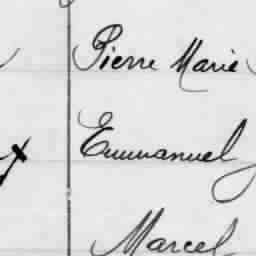 Pierre Marie
Emmanuel
Marcel